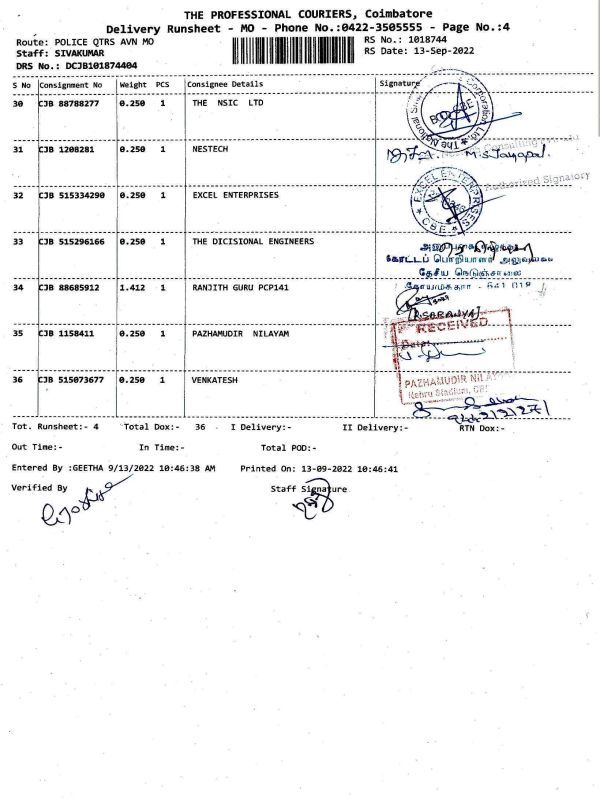 THE PROFESSIONAL COURIERS, Coimbatore
Delivery Runsheet - MO - Phone No.:0422-3505555 - Page No.:4
Route: POLICE QTRS AVN MO
RS No.: 1018744
Staff: SIVAKUMAR
RS Date: 13-Sep-2022
DRS No.: DCJB101874404
S No Consignment No Weight PCS Consignee Details Signature
30 CJB 88788277 0.250 1 THE NSIC LTD
31 CJB 1208281 0.250 1 NESTECH
M.S.Jayapal.
Authorised Signatory
32 CJB 515334290 0.250 1 EXCEL ENTERPRISES
EXCEL ENTERPRISES
CBE
33 CJB 515296166 0.250 1 THE DICISIONAL ENGINEERS
கோட்டப் பொறியாளர் அலுவலகம்
தேசிய நெடுஞ்சாலை
641 018
34 CJB 88685912 1.412 1 RANJITH GURU PCP141
[R.SARANYA]
35 CJB 1158411 0.250 1 PAZHAMUDIR NILAYAM
RECEIVED
Date:
PAZHAMUDIR NILAY
Nehru Stadium, CBE
36 CJB 515073677 0.250 1 VENKATESH
Tot. Runsheet:- 4 Total Dox:- 36 I Delivery:- II Delivery:- RTN Dox:-
Out Time:- In Time:- Total POD:-
Entered By :GEETHA 9/13/2022 10:46:38 AM Printed On: 13-09-2022 10:46:41
Verified By Staff Signature